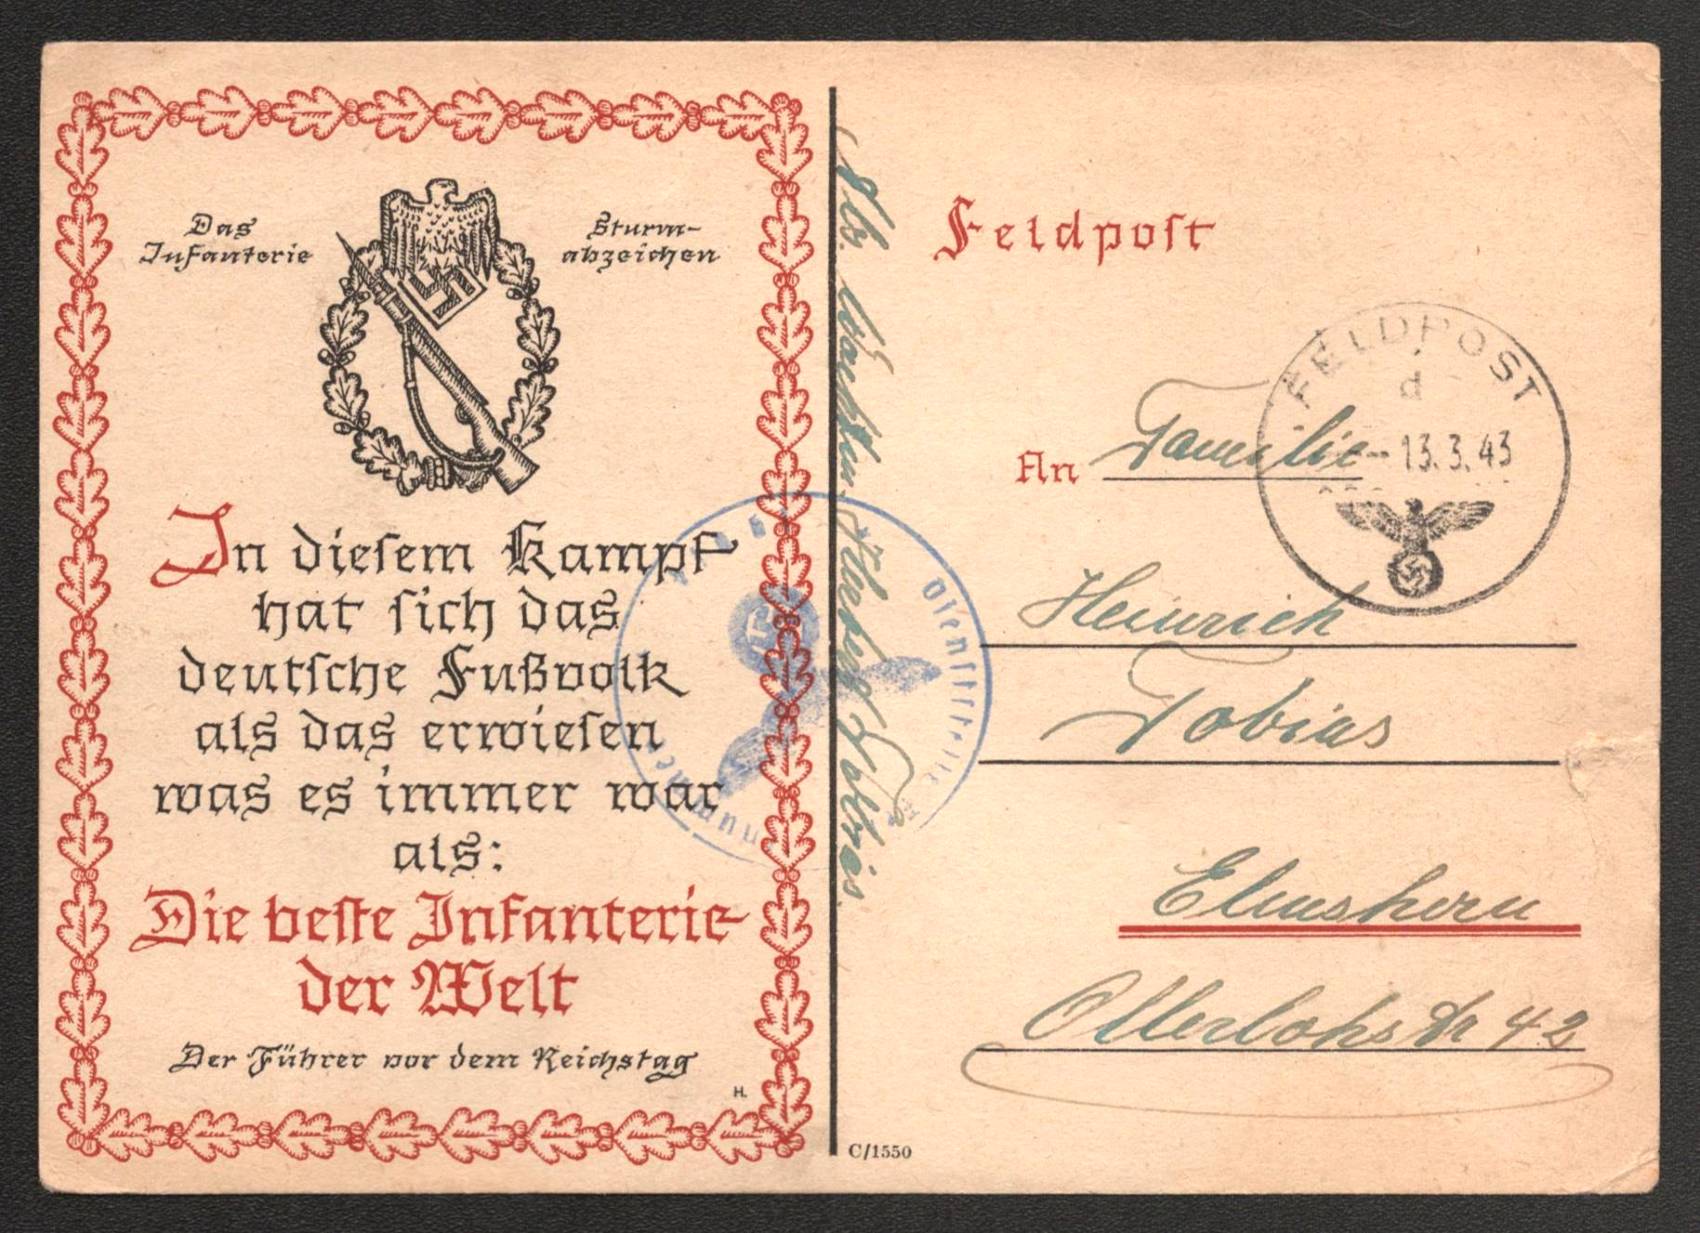 Das
Infanterie
Sturm-
abzeichen
In diesem Kampf
hat sich das
deutsche Fußvolk
als das erwiesen
was es immer war
als:
Die beste Infanterie
der Welt
Der Führer vor dem Reichstag
H.
Feldpost
FELDPOST
d
-13.3.43
An Familie
Heinrich
Tobias
Elmshorn
Ollerlohstr 42
C/1550
Dienststelle